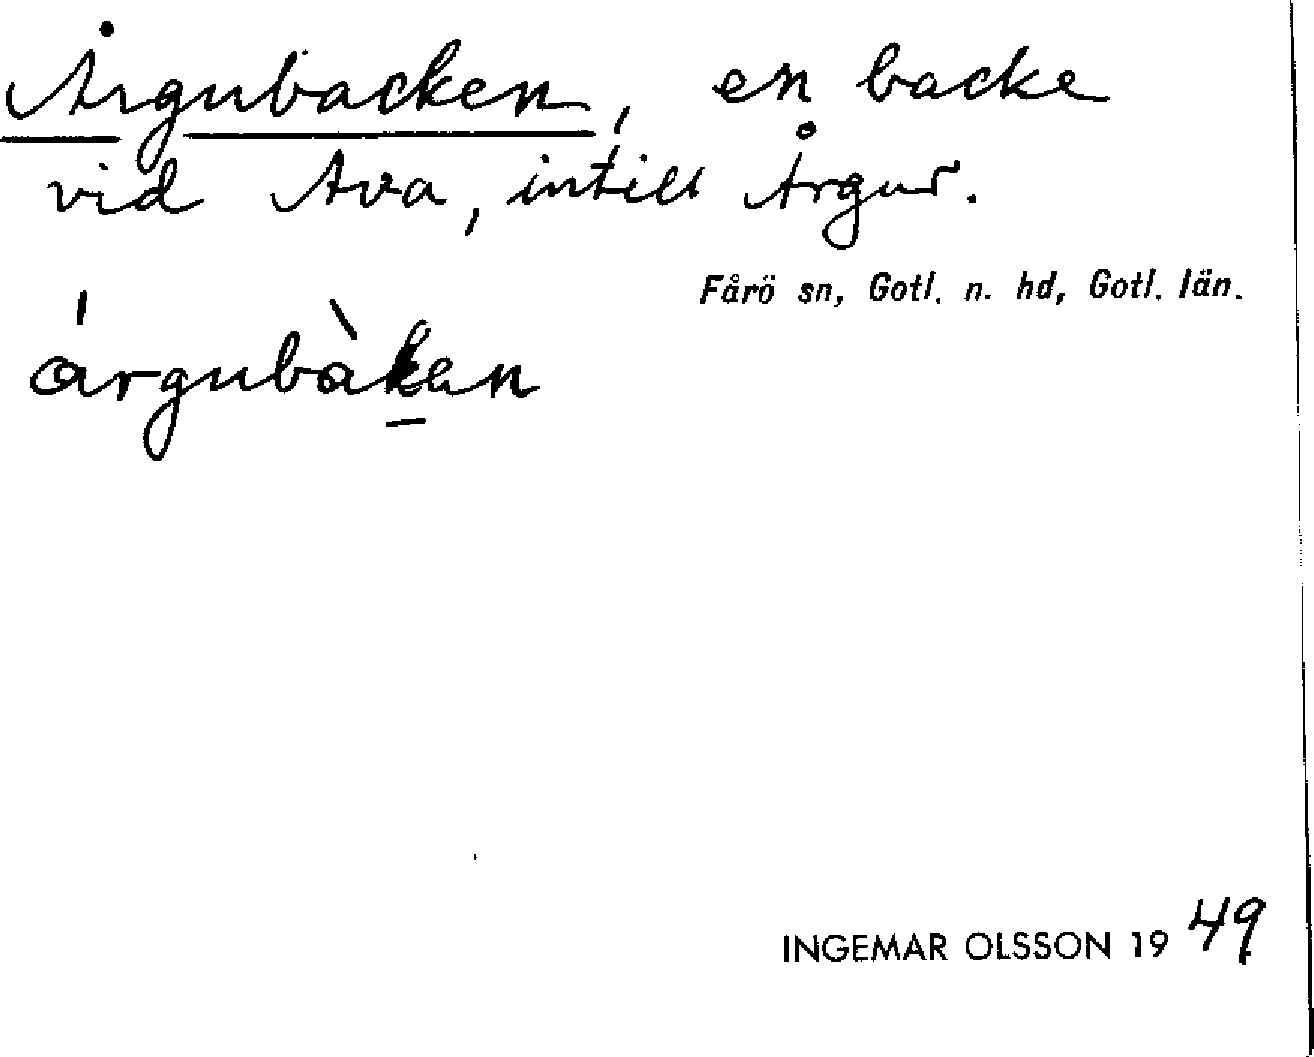 Årgubacken, en backe
vid Ava, intill Årgur.
Fårö sn, Gotl. n. hd, Gotl. län.
árgubàkan
INGEMAR OLSSON 1949